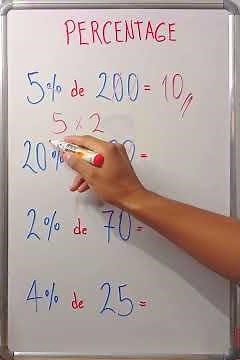 PERCENTAGE
5% de 200 = 10
5 × 2
20% =
2% de 70 =
4% de 25 =